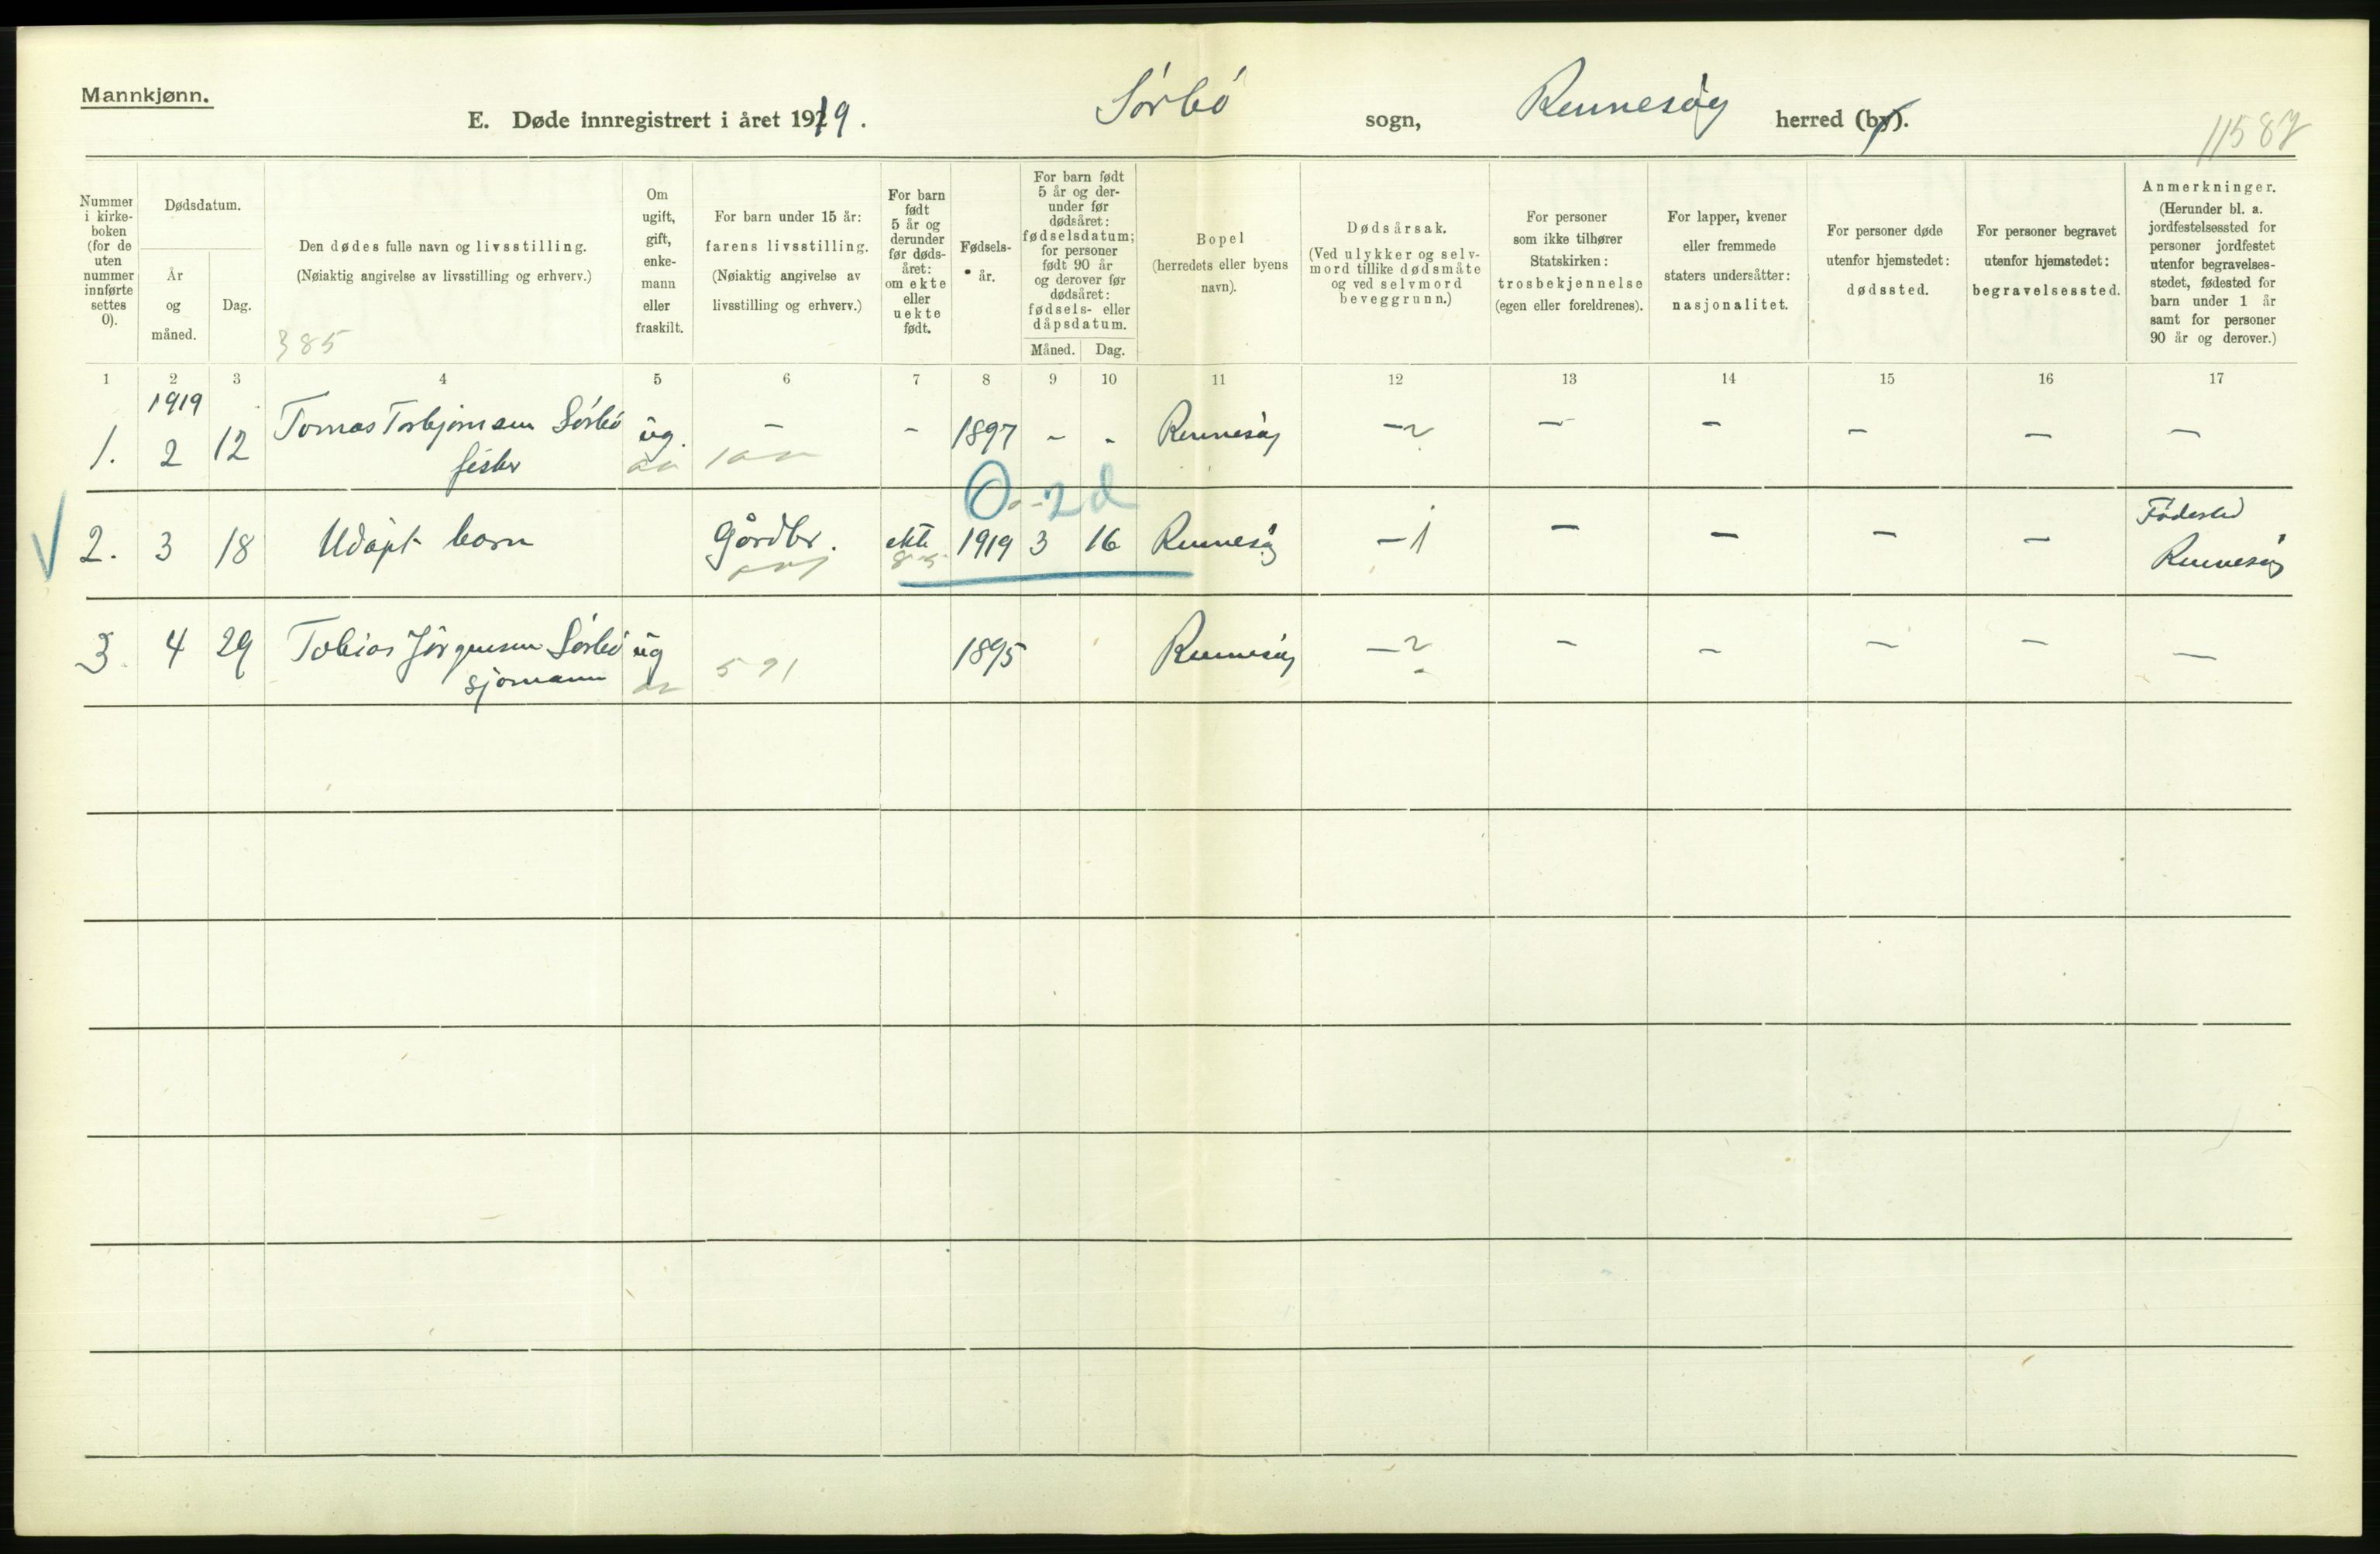 Mannkjønn.
E. Døde innregistrert i året 1919.
Sörbö sogn, Rennesöy herred (by).
11587
Nummer i kirke-boken (for de uten nummer innførte settes 0).
Dødsdatum.
År og måned.
Dag.
Den dødes fulle navn og livsstilling.
(Nøiaktig angivelse av livsstilling og erhverv.)
385
Om ugift, gift, enke-mann eller fraskilt.
For barn under 15 år:
farens livsstilling.
(Nøiaktig angivelse av livsstilling og erhverv.)
For barn født 5 år og derunder før døds-året: om ekte eller uekte født.
Fødsels-år.
For barn født 5 år og der-under før dødsåret: fødselsdatum; for personer født 90 år og derover før dødsåret: fødsels- eller dåpsdatum.
Måned. Dag.
Bopel
(herredets eller byens navn).
Dødsårsak.
(Ved ulykker og selv-mord tillike dødsmåte og ved selvmord beveggrunn.)
For personer som ikke tilhører Statskirken:
trosbekjennelse
(egen eller foreldrenes).
For lapper, kvener eller fremmede staters undersåtter:
nasjonalitet.
For personer døde utenfor hjemstedet:
dødssted.
For personer begravet utenfor hjemstedet:
begravelsessted.
Anmerkninger.
(Herunder bl. a. jordfestelsessted for personer jordfestet utenfor begravelses-stedet, fødested for barn under 1 år samt for personer 90 år og derover.)
1 2 3 4 5 6 7 8 9 10 11 12 13 14 15 16 17
1919
1. 2 12 Tomas Torbjörnsen Sörbö ug. – – 1897 – – Rennesöy – – – – – –
fisker
0 - 2 d
2. 3 18 Udöpt barn Gårdbr. ekte 1919 3 16 Rennesöy – – – – – Födested
Rennesöy
3. 4 29 Tobias Jörgensen Sörbö ug 591 1895 Rennesöy – – – – – –
sjömann